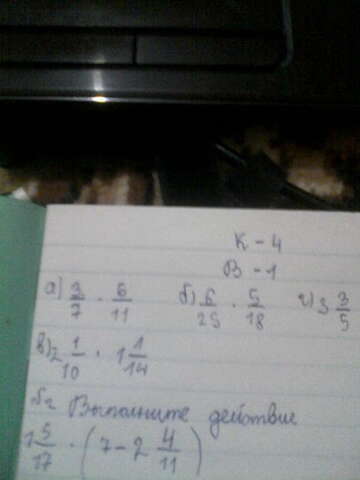 К - 4
В - 1
а) 3/7 · 6/11 б) 6/25 · 5/18 г) 3 3/5
в) 2 1/10 · 1 1/14
№2 Выполните действие
1 5/17 · (7 - 2 4/11)